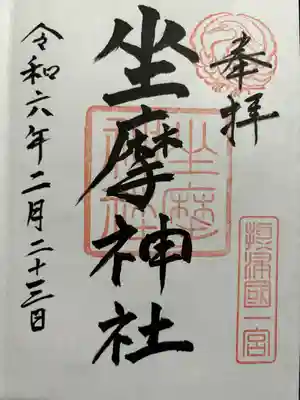 奉拝
摂津國一宮
坐摩神社
坐摩神社
令和六年二月二十三日